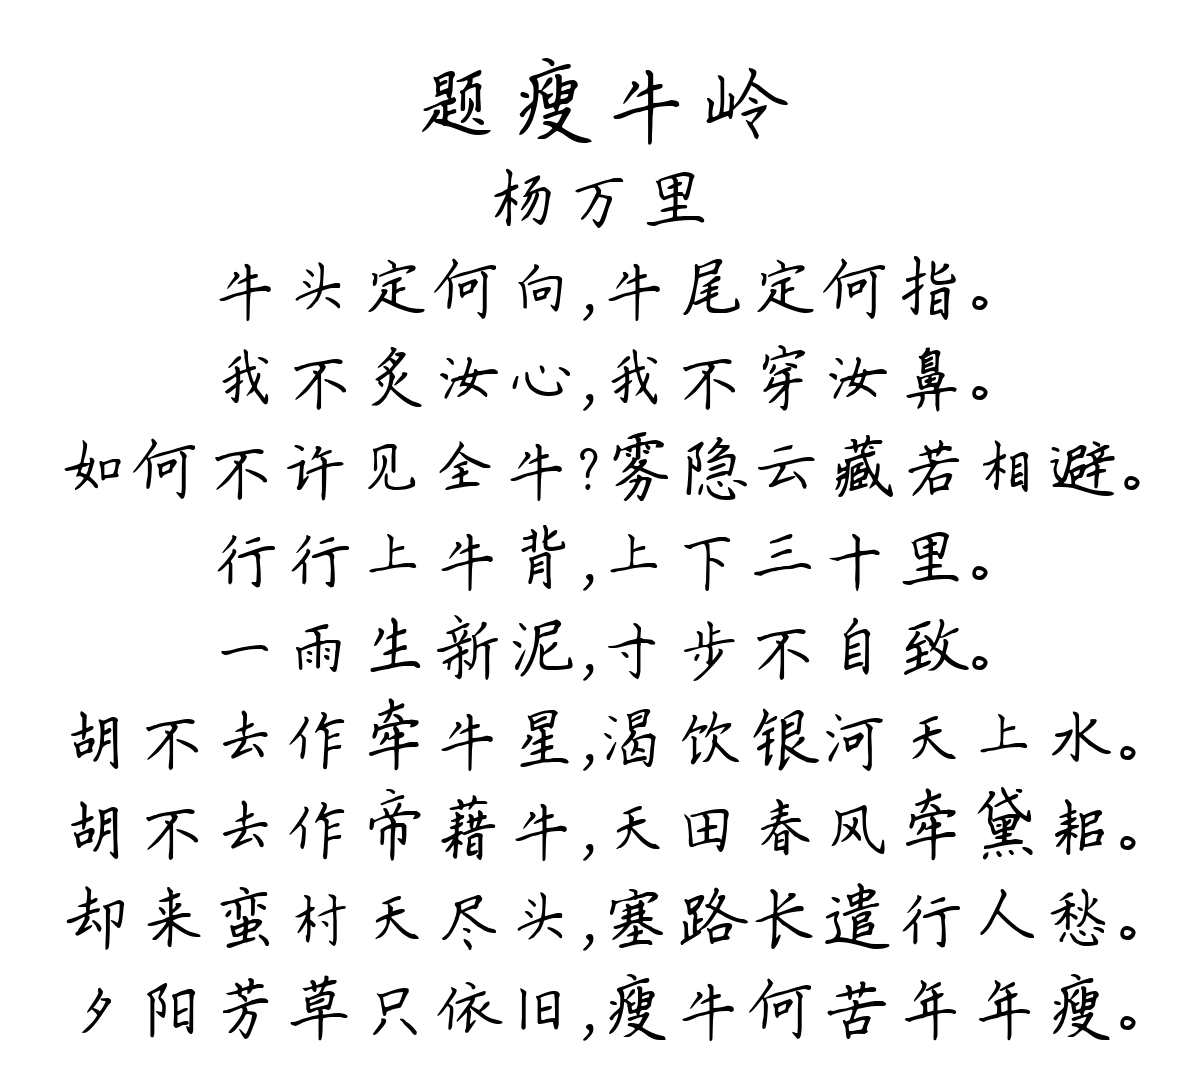 题瘦牛岭
杨万里
牛头定何向,牛尾定何指。
我不炙汝心,我不穿汝鼻。
如何不许见全牛?雾隐云藏若相避。
行行上牛背,上下三十里。
一雨生新泥,寸步不自致。
胡不去作牵牛星,渴饮银河天上水。
胡不去作帝藉牛,天田春风牵黛耜。
却来蛮村天尽头,塞路长遣行人愁。
夕阳芳草只依旧,瘦牛何苦年年瘦。